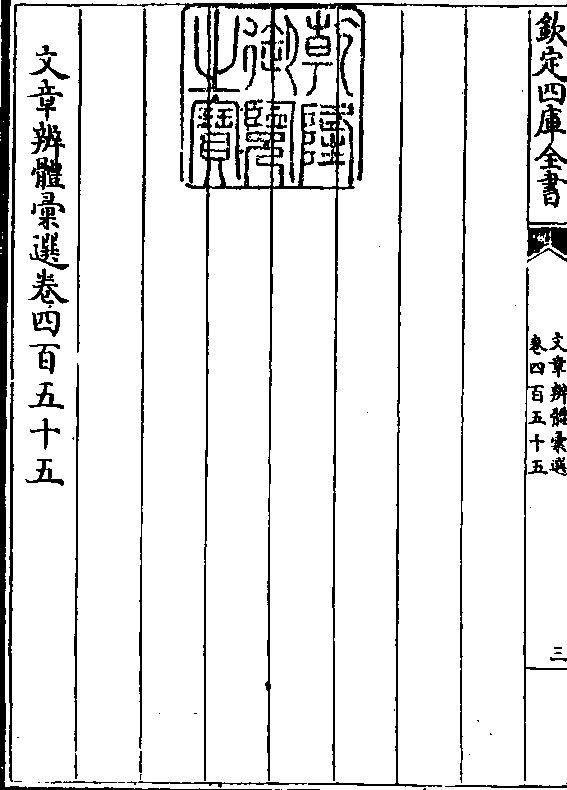 欽定四庫全書
文章辨體彙選
卷四百五十五
三
乾隆
御覽
之寶
文章辨體彙選卷四百五十五